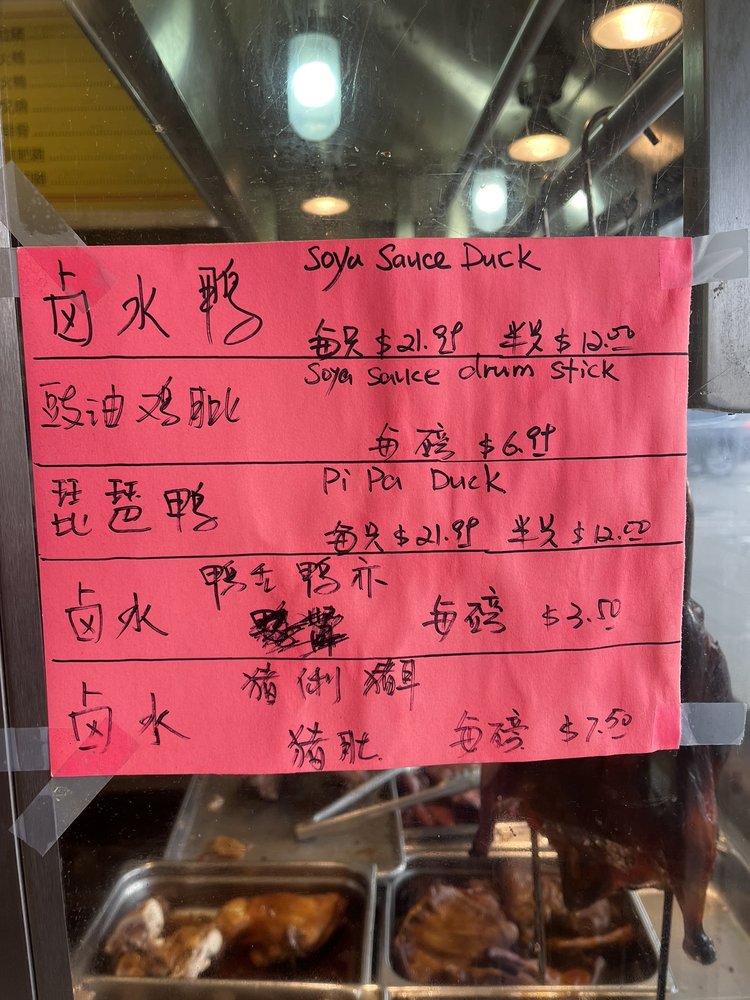 Soya Sauce Duck
卤水鸭
每只 $21.99 半只 $12.00
Soya sauce drum stick
豉油鸡肶
每磅 $6.99
Pi Pa Duck
琵琶鸭
每只 $21.99 半只 $12.00
鸭舌 鸭亦
卤水 每磅 $3.50
猪俐 猪耳
卤水
猪肚 每磅 $7.50